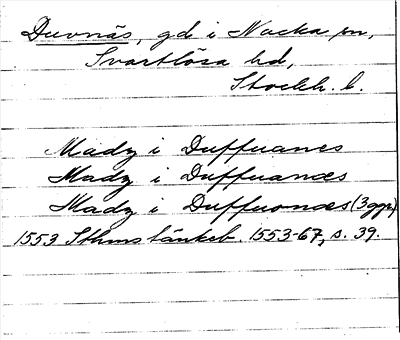 Duvnäs, gd i Nacka sn,
Svartlösa hd,
Stockh. l.
Mady i Duffuanes
Mady i Duffuandes
Mady i Duffuondes (3 ggr)
1553 Sthms tänkeb. 1553-67, s. 39.